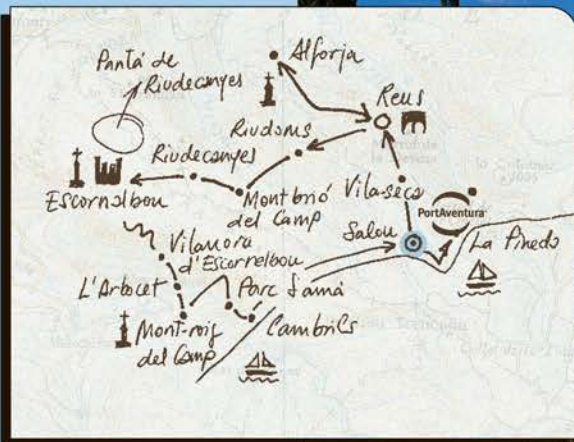 Pantà de
Riudecanyes
Alforja
Reus
Riudoms
Riudecanyes
Escornalbou
Montbrió
del Camp
Vilaseca
PortAventura
Salou
La Pineda
Vilanova
d'Escornalbou
L'Arbocet
Parc Samà
Mont-roig
del Camp
Cambrils